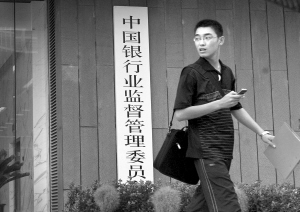 中国银行业监督管理委员